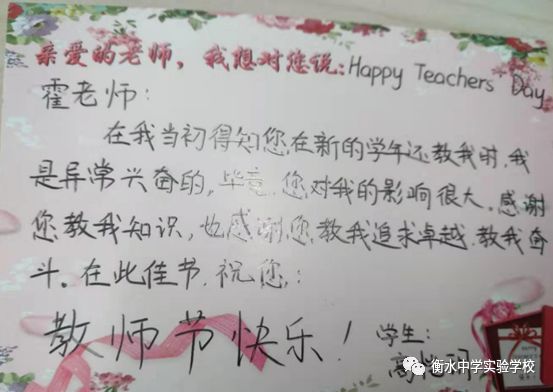 亲爱的老师，我想对您说：Happy Teachers Day
霍老师：
在我当初得知您在新的学年还教我时，我
是异常兴奋的，毕竟，您对我的影响很大。感谢
您教我知识，也感谢您教我追求卓越，教我奋
斗。在此佳节，祝您：
教师节快乐！
学生：
高
衡水中学实验学校